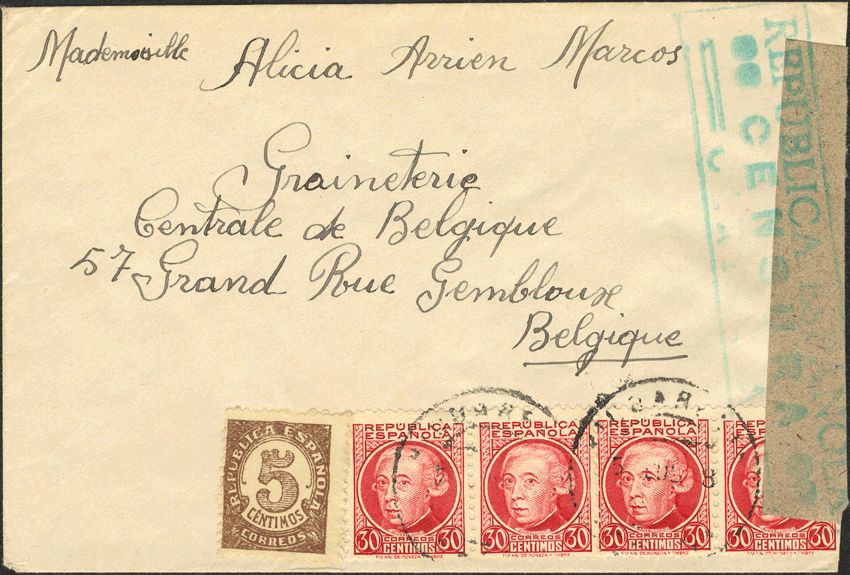 Mademoiselle Alicia Arrien Marcos
Graineterie
Centrale de Belgique
57 Grand Rue Gembloux
Belgique
REPUBLICA ESPAÑOLA
CENSURA
REPUBLICA ESPAÑOLA
5
CÉNTIMOS
CORREOS
REPUBLICA
ESPAÑOLA
CORREOS
30 CENTIMOS 30
REPUBLICA
ESPAÑOLA
CORREOS
30 CENTIMOS 30
REPUBLICA
ESPAÑOLA
CORREOS
30 CENTIMOS 30
REPUBLICA
CORREOS
30 CENTIMOS 30